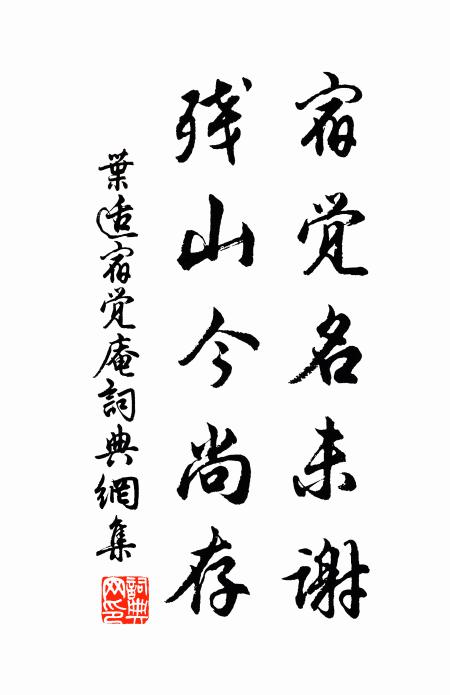 宿觉名未谢
残山今尚存
葉适宿觉庵詞典網集
詞典網印